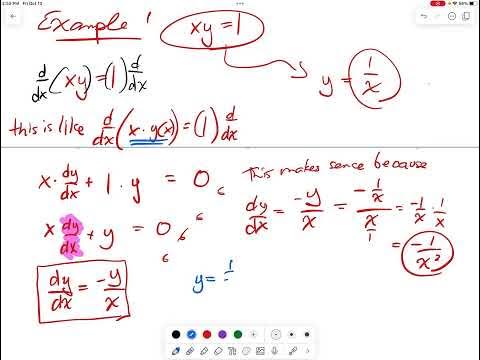 2:50 PM Fri Oct 13
Example 1 xy = 1
y = 1/x
d/dx (xy) = (1) d/dx
this is like d/dx (x · y(x)) = (1) d/dx
x · dy/dx + 1 · y = 0
x dy/dx + y = 0
dy/dx = -y/x
y = 1
This makes sence because
dy/dx = -y/x = (-1/x)/(x/1) = -1/x · 1/x
= -1/x²